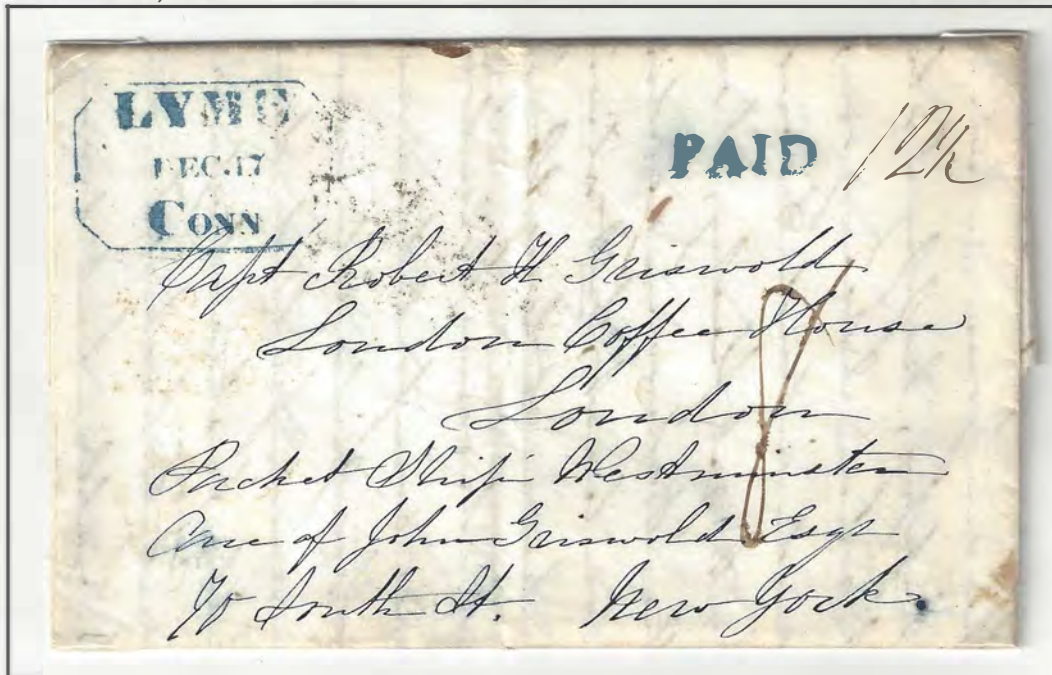 LYME
DEC.17
CONN
PAID 12½
Capt Robert H Griswold
London Coffee House
London
8
Packet Ship Westminster
Care of John Griswold Esqr
70 South St. New York.